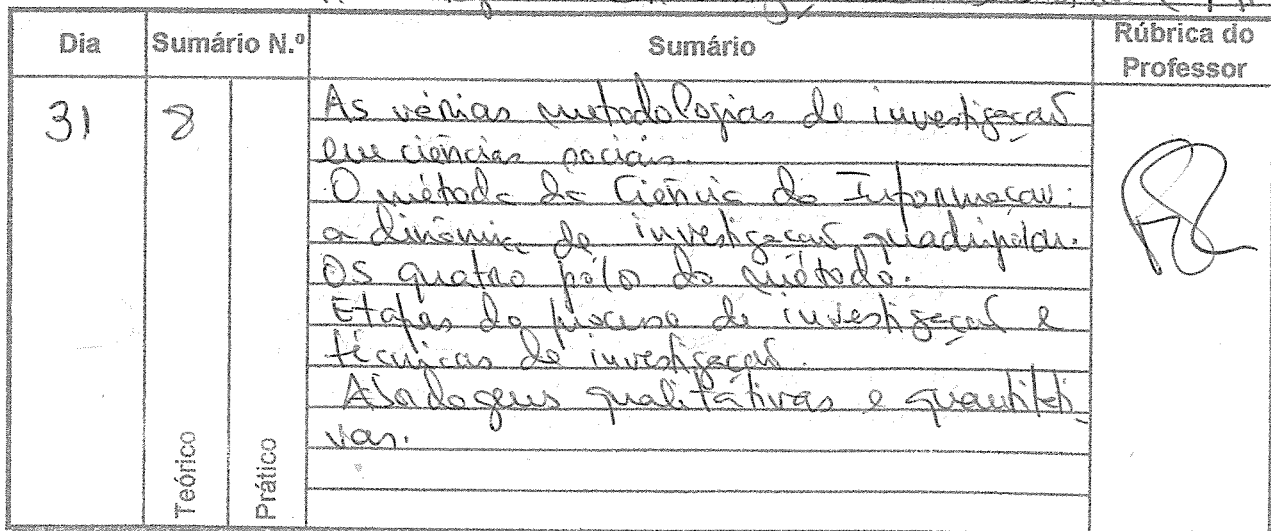 Dia Sumário N.º Sumário Rúbrica do Professor
31 8
As várias metodologias de investigação
em ciências sociais.
O método da Ciência da Informação:
a dinâmica de investigação quadripolar.
Os quatro pólos do método.
Etapas do processo de investigação e
técnicas de investigação.
Abordagens qualitativas e quantitati-
vas.
Teórico
Prático